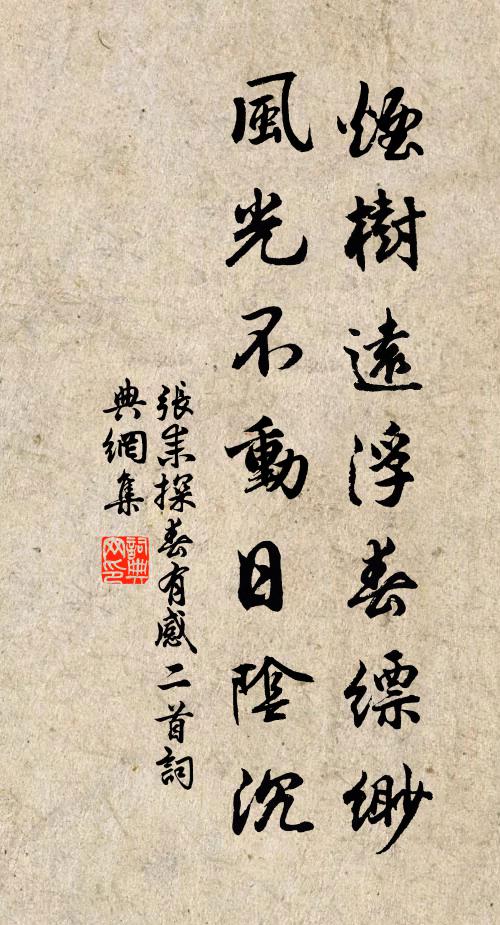 煙樹遠浮春縹緲
風光不動日陰沉
張耒探春有感二首詞
典網集
詞典网印